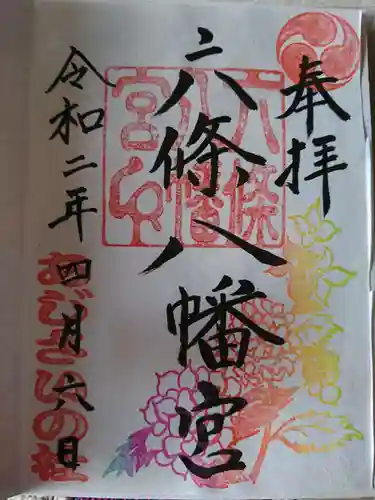 奉拝
六條八幡宮
令和二年四月六日
あじさいの社
六條八幡宮